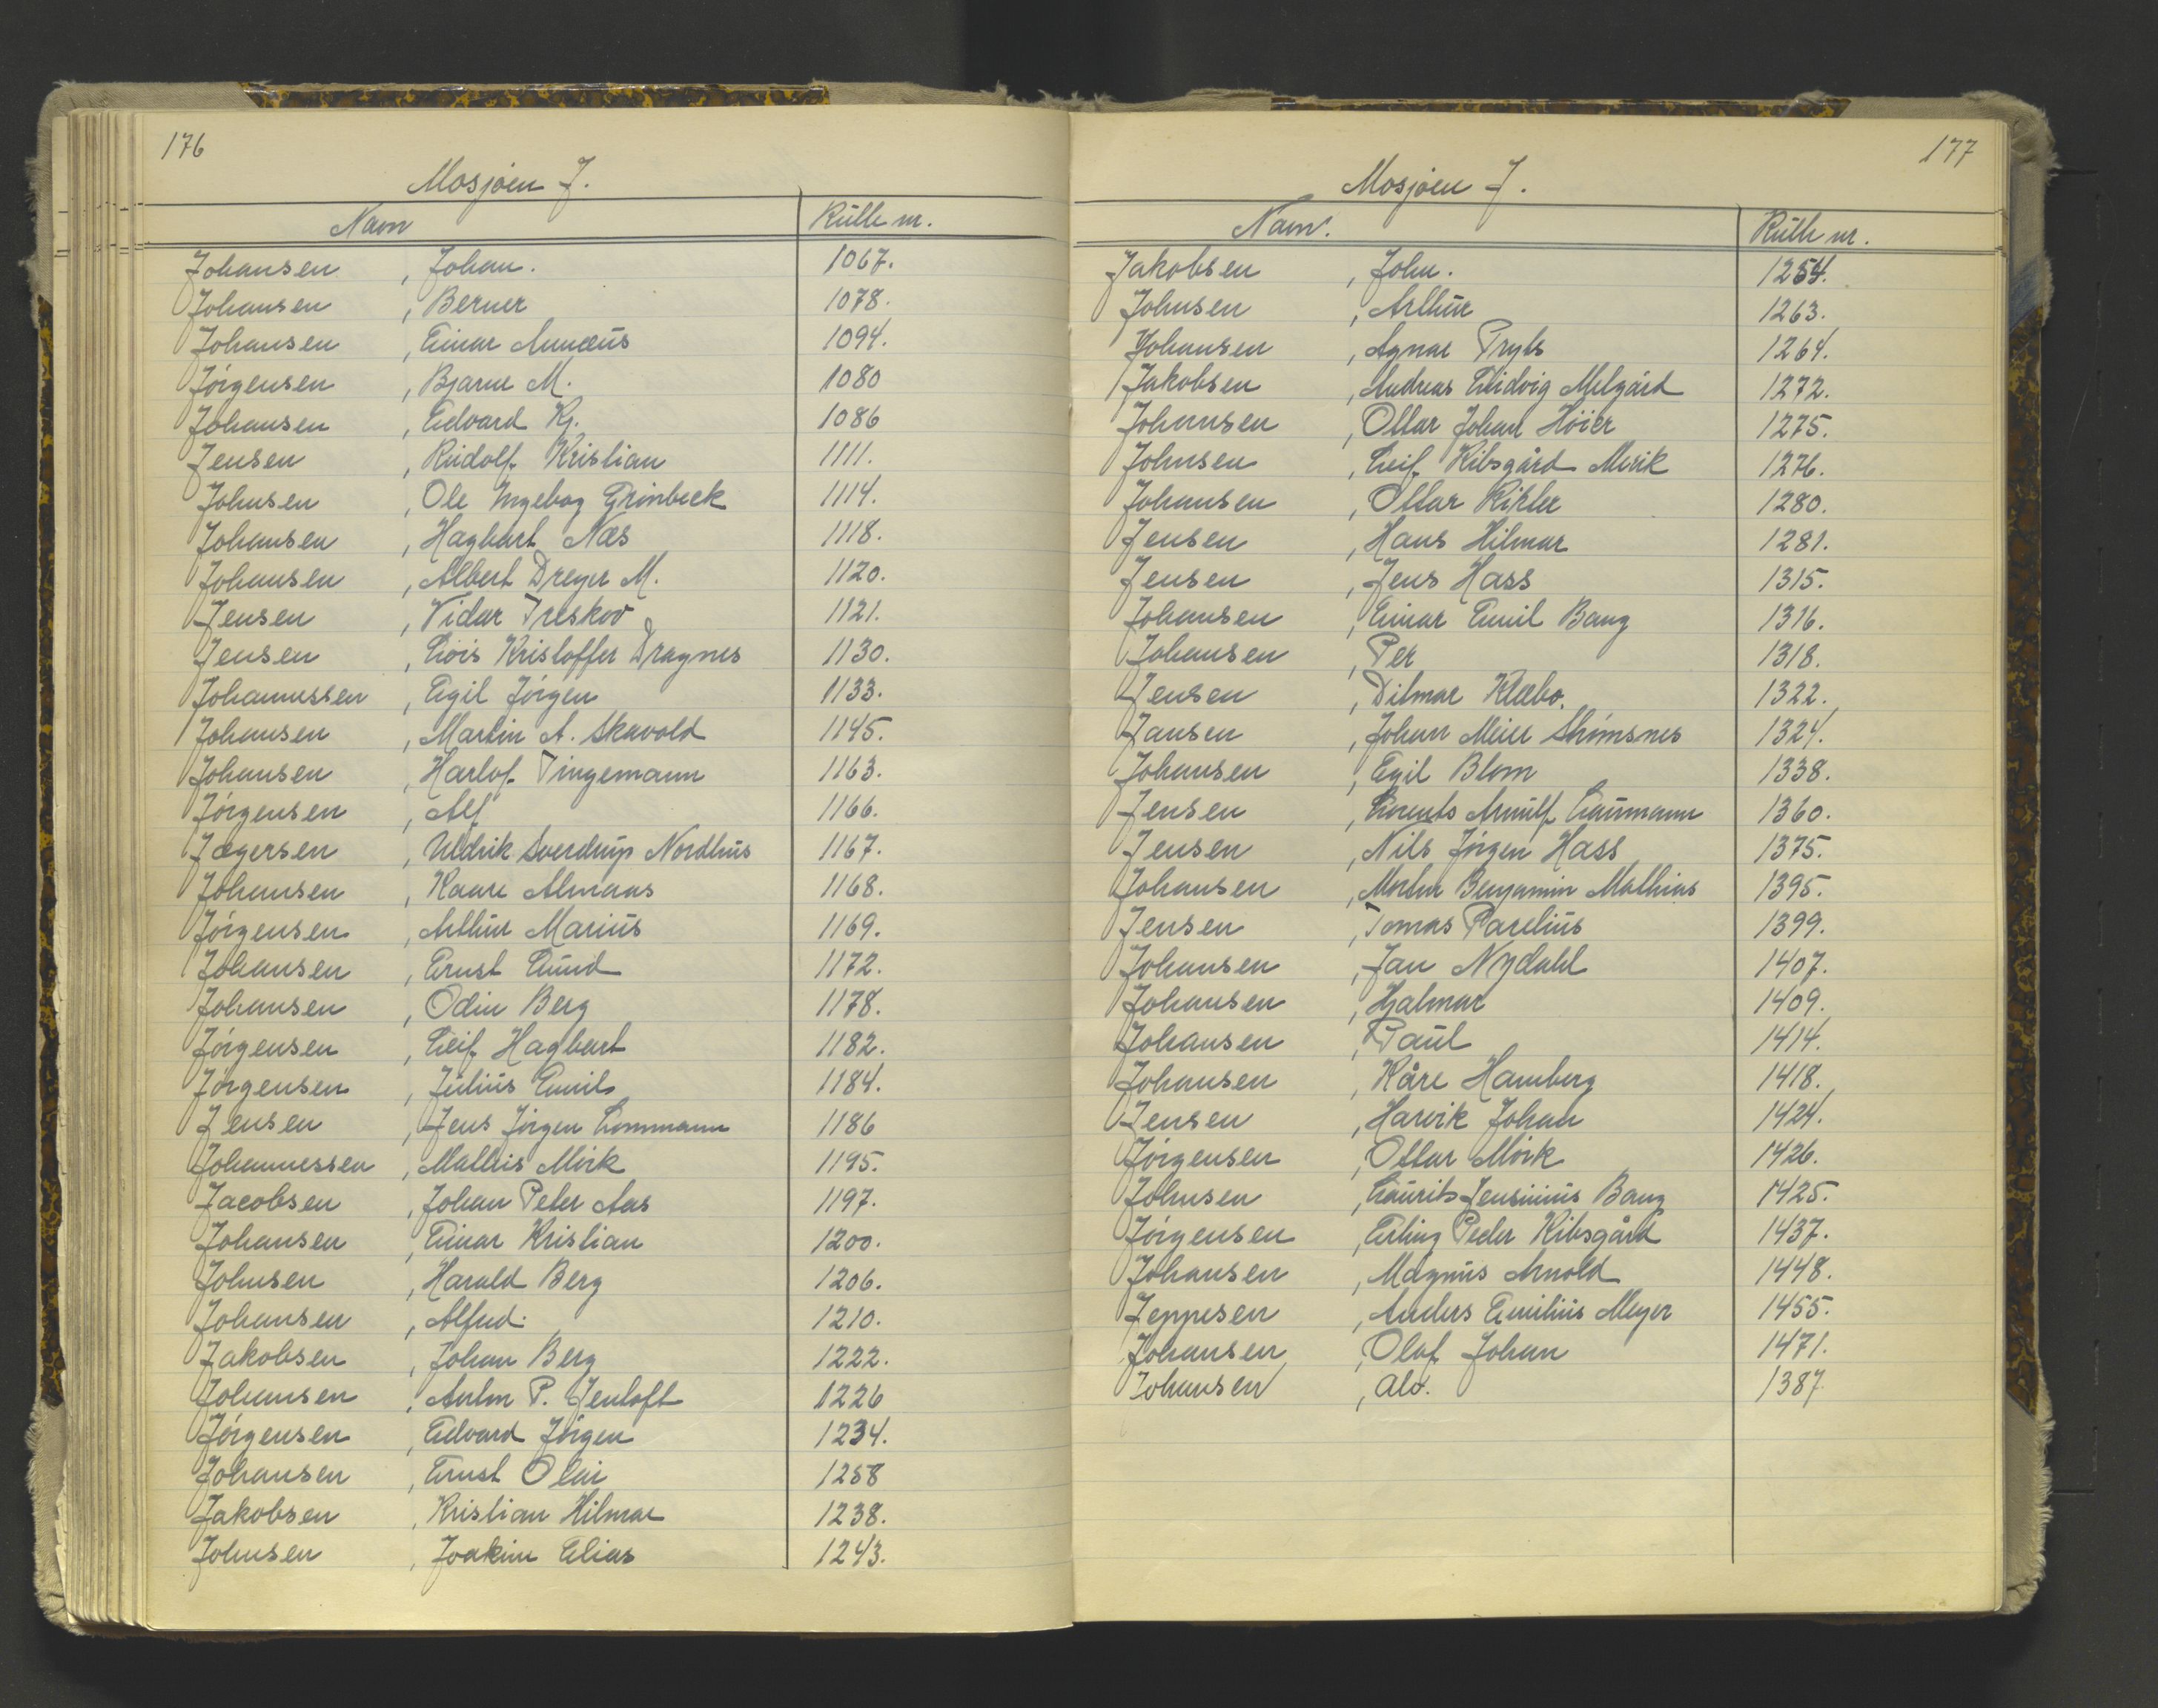 176
Mosjøen J.
Navn Rulle nr.
Johansen , Johan. 1067.
Johansen , Berner 1078.
Johansen , Einar Annæus 1094.
Jörgensen , Bjarne M. 1080
Johansen , Edvard Kr. 1086
Jensen , Rudolf Kristian 1111.
Johnsen , Ole Ingebog Grönbeck 1114.
Johansen , Hagbart Næs 1118.
Johansen , Albert Dreyer M. 1120.
Jensen , Vidar Treskov 1121.
Jensen , Kristoffer Dragnes 1130.
Johannessen , Egil Jörgen 1133.
Johansen , Martin A. Skavold 1145.
Johansen , Harlof Tingemann 1163.
Jörgensen , Alf 1166.
Jægersen , Uldrik Sverdrup Nordhus 1167.
Johansen , Kaare Almaas 1168.
Jörgensen , Arthur Marius 1169.
Johansen , Ernst Lund 1172.
Johansen , Odin Berg 1178.
Jörgensen , Leif Hagbart 1182.
Jörgensen , Julius Emil 1184.
Jensen , Jens Jörgen Lommann 1186
Johannessen , Mathis Mörk 1195.
Jacobsen , Johan Peter Aas 1197.
Johansen , Einar Kristian 1200.
Johnsen , Harald Berg 1206.
Johansen , Alfred. 1210.
Jakobsen , Johan Berg 1222.
Johansen , Anton P. Jentoft 1226
Jörgensen , Edvard Jörgen 1234.
Johansen , Ernst Olai 1258
Jakobsen , Kristian Hilmar 1238.
Johnsen , Joakim Elias 1243.
177
Mosjøen J.
Navn. Rulle nr.
Jakobsen , John. 1254.
Johnsen , Arthur 1263.
Johansen , Agnar Pryts 1264.
Jakobsen , Andreas Eidvig Melgård 1272.
Johansen , Ottar Johan Höier 1275.
Johnsen , Leif Kibsgård Merik 1276.
Johansen , Ottar Rikter 1280.
Jensen , Hans Hilmar 1281.
Jensen , Jens Hass 1315.
Johansen , Einar Emil Bang 1316.
Johansen , Per 1318.
Jensen , Ditmar Klæbo. 1322.
Jansen , Johan Meier Strömsnes 1324.
Johansen , Egil Blom 1338.
Jensen , Lorents Arnulf Laumann 1360.
Jensen , Nils Jörgen Hass 1375.
Johansen , Morten Benjamin Mathias 1395.
Jensen , Tomas Parelius 1399.
Johansen , Jan Nydahl 1407.
Johansen , Hjalmar 1409.
Johansen , Paul 1414.
Johansen , Kåre Hamberg 1418.
Jensen , Harvik Johan 1424.
Jörgensen , Ottar Mörk 1426.
Johnsen , Laurits Jensinius Bang 1425.
Jörgensen , Erling Peder Kibsgård 1437.
Johansen , Magnus Arnold 1448.
Jeppesen , Anders Emilius Meyer 1455.
Johansen , Olaf Johan 1471.
Johansen , Alv. 1387